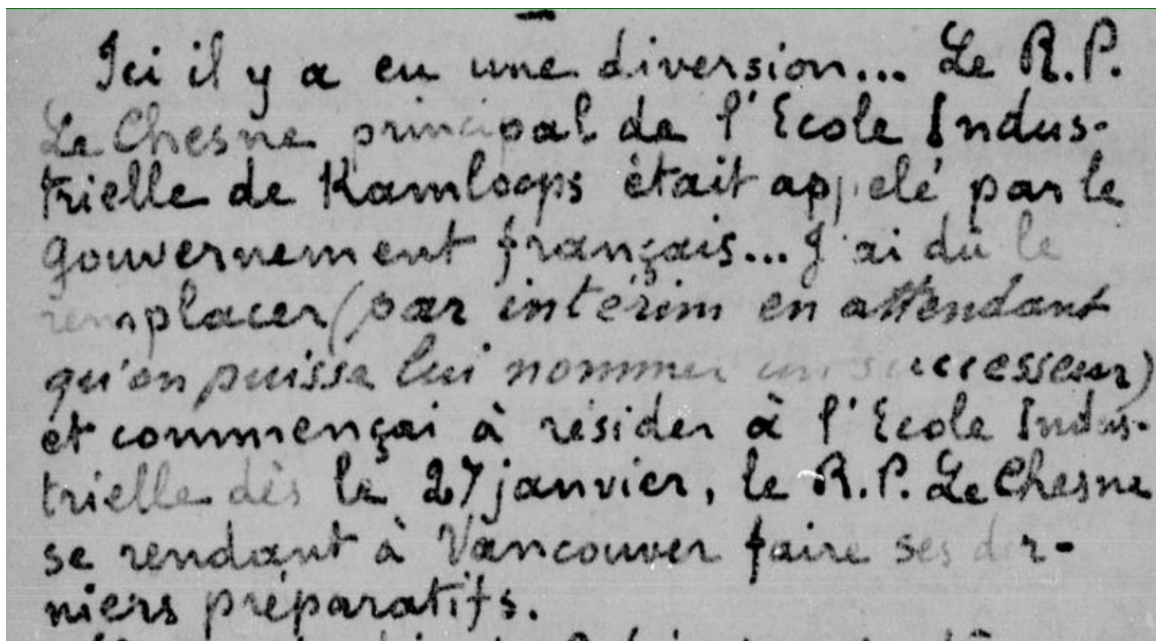 Ici il y a eu une diversion... Le R.P.
Le Chesne principal de l'Ecole Indus-
trielle de Kamloops était appelé par le
gouvernement français... J'ai dû le
remplacer (par intérim en attendant
qu'on puisse lui nommer un successeur)
et commençai à résider à l'Ecole Indus-
trielle dès le 27 janvier, le R.P. Le Chesne
se rendant à Vancouver faire ses der-
niers préparatifs.